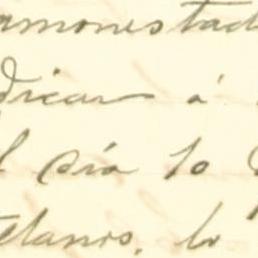 amonestad
dicar á
l día 10
telanos, lo